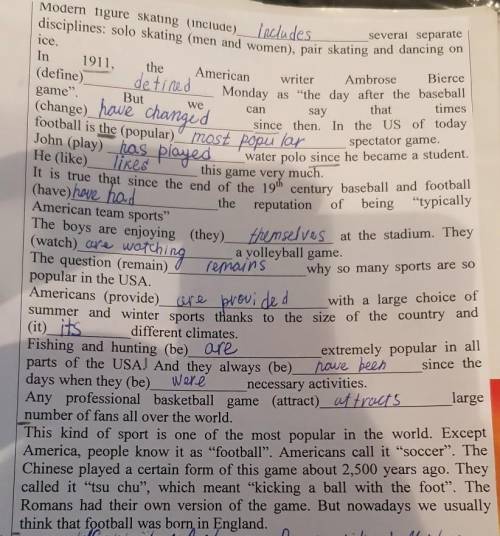 Modern figure skating (include) includes several separate
disciplines: solo skating (men and women), pair skating and dancing on
ice.
In 1911, the American writer Ambrose Bierce
(define) defined Monday as “the day after the baseball
game”. But we can say that times
(change) have changed since then. In the US of today
football is the (popular) most popular spectator game.
John (play) has played water polo since he became a student.
He (like) likes this game very much.
It is true that since the end of the 19th century baseball and football
(have) have had the reputation of being “typically
American team sports”
The boys are enjoying (they) themselves at the stadium. They
(watch) are watching a volleyball game.
The question (remain) remains why so many sports are so
popular in the USA.
Americans (provide) are provided with a large choice of
summer and winter sports thanks to the size of the country and
(it) its different climates.
Fishing and hunting (be) are extremely popular in all
parts of the USA. And they always (be) have been since the
days when they (be) were necessary activities.
Any professional basketball game (attract) attracts large
number of fans all over the world.
This kind of sport is one of the most popular in the world. Except
America, people know it as “football”. Americans call it “soccer”. The
Chinese played a certain form of this game about 2,500 years ago. They
called it “tsu chu”, which meant “kicking a ball with the foot”. The
Romans had their own version of the game. But nowadays we usually
think that football was born in England.